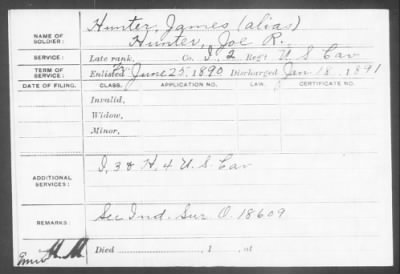 Hunter, James (alias)
NAME OF SOLDIER: Hunter, Joe R.
SERVICE: Late rank, Co. I, 2 Reg't U S Cav
TERM OF SERVICE: Enlisted June 25, 1890 Discharged Jan 18, 1891
DATE OF FILING. CLASS. APPLICATION NO. LAW. CERTIFICATE NO.
Invalid,
Widow,
Minor,
ADDITIONAL SERVICES: I, 3 & H, 4 U. S. Cav
REMARKS: See Ind. Sur. O. 18609
Died , 1 , at